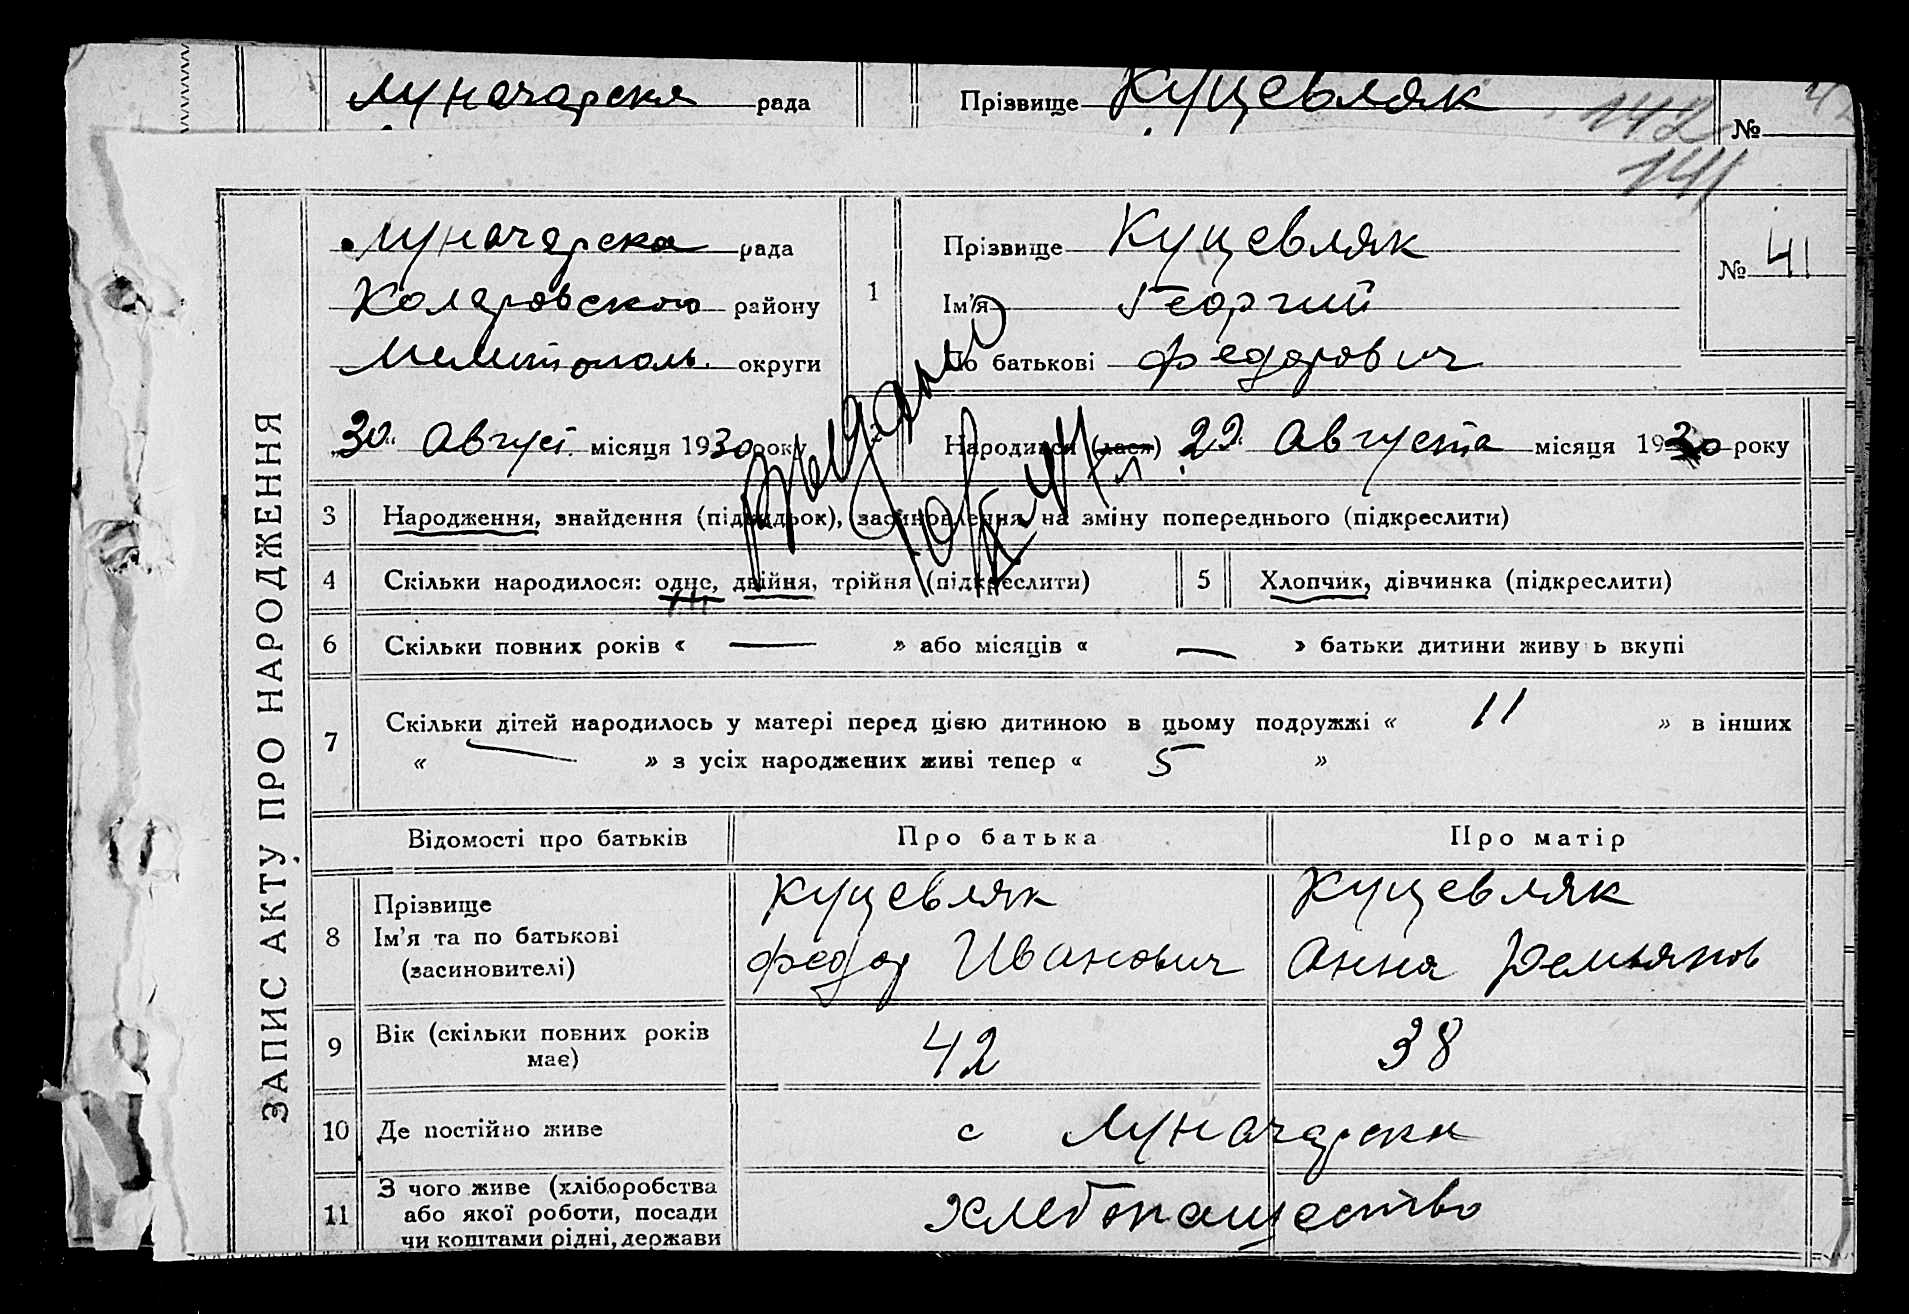 Луначарск рада Прізвище Куцевляк № 42
142
141
ЗАПИС АКТУ ПРО НАРОДЖЕННЯ
Луначарска рада
Коларовского району
Мелитополь. округи
1
Прізвище Куцевляк
Ім'я Георгий
По батькові Федорович
№ 41
„30“ Август. місяця 1930 року
Народився (лася) 29 Августа місяця 1930 року
3 Народження, знайдення (підкидьок), засиновлення, на зміну попереднього (підкреслити)
4 Скільки народилося: одне, двійня, трійня (підкреслити) 5 Хлопчик, дівчинка (підкреслити)
6 Скільки повних років « — » або місяців « — » батьки дитини живуть вкупі
7 Скільки дітей народилось у матері перед цією дитиною в цьому подружжі « 11 » в інших
« — » з усіх народжених живі тепер « 5 »
Відомості про батьків Про батька Про матір
8 Прізвище Куцевляк Куцевляк
Ім'я та по батькові Федор Иванович Анна Демьянов
(засиновителі)
9 Вік (скільки повних років має) 42 38
10 Де постійно живе с Луначарск
11 З чого живе (хліборобства Хлебопашество
або якої роботи, посади
чи коштами рідні, держави